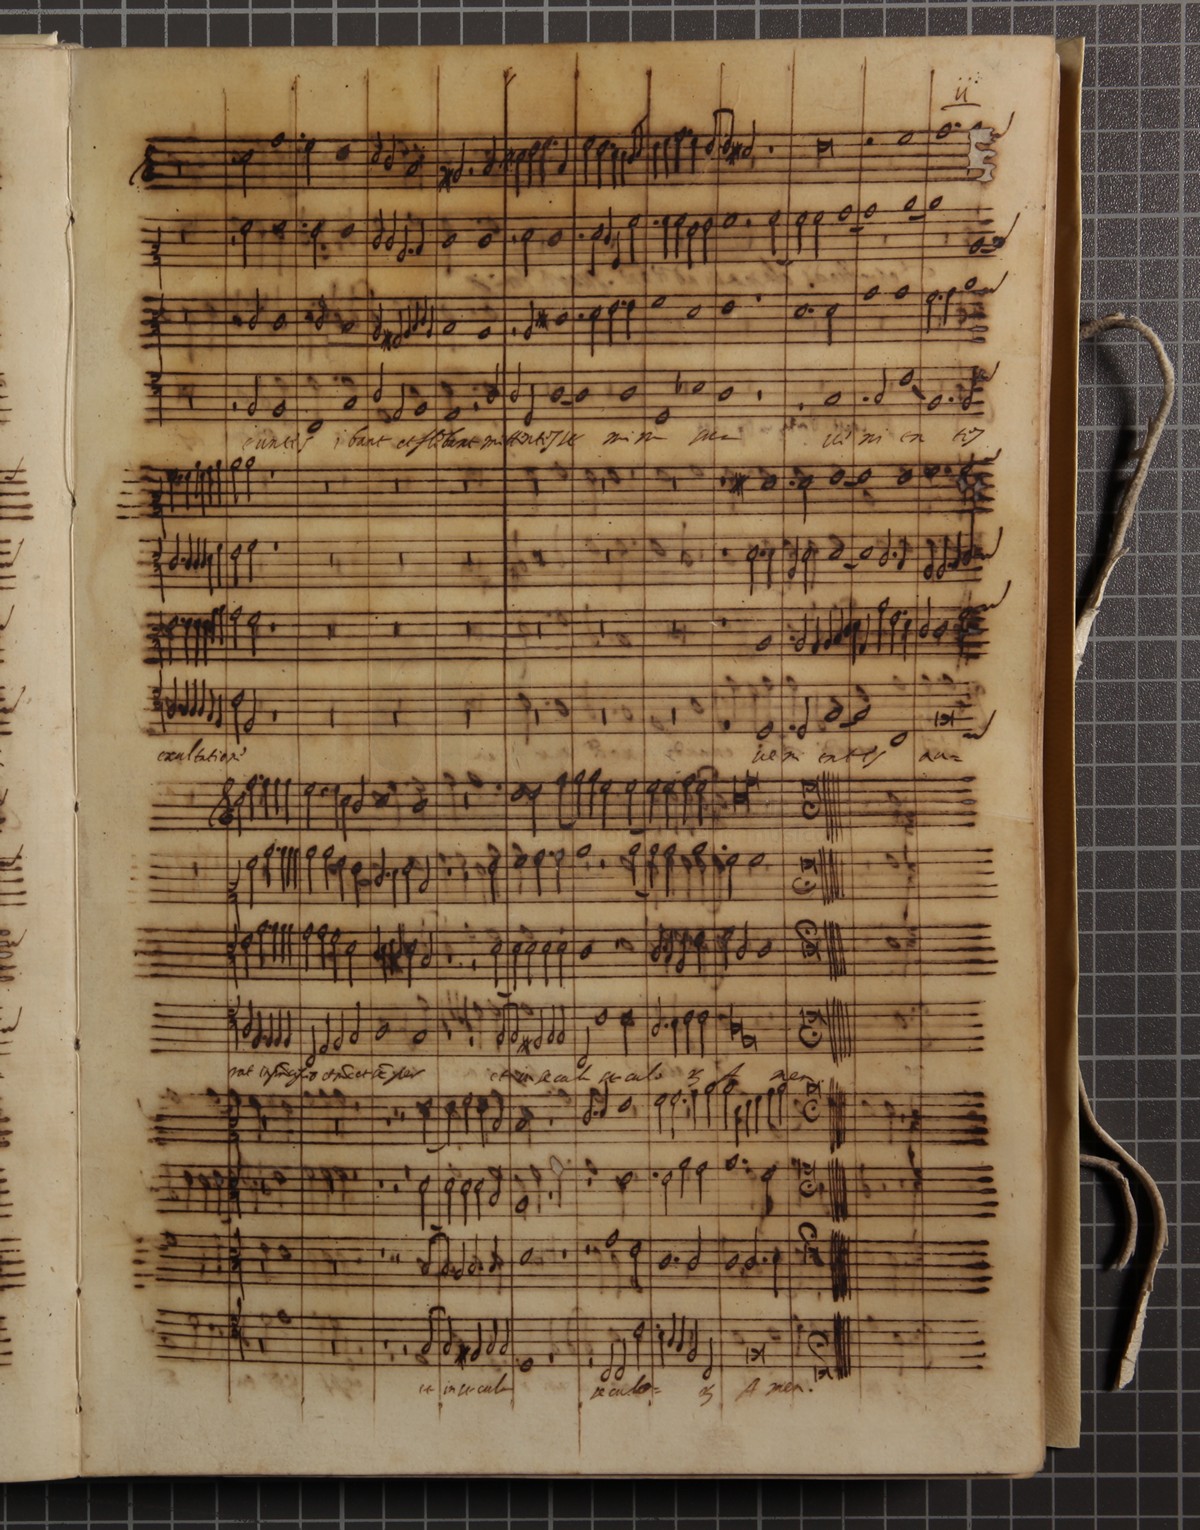 ii
euntes ibant et flebant mittentes se mi na sua veni en tes
exultatione
venientes au=
rat in principio et nunc et semper et in secula seculo rz A men.
et in secula seculo= rz A men.